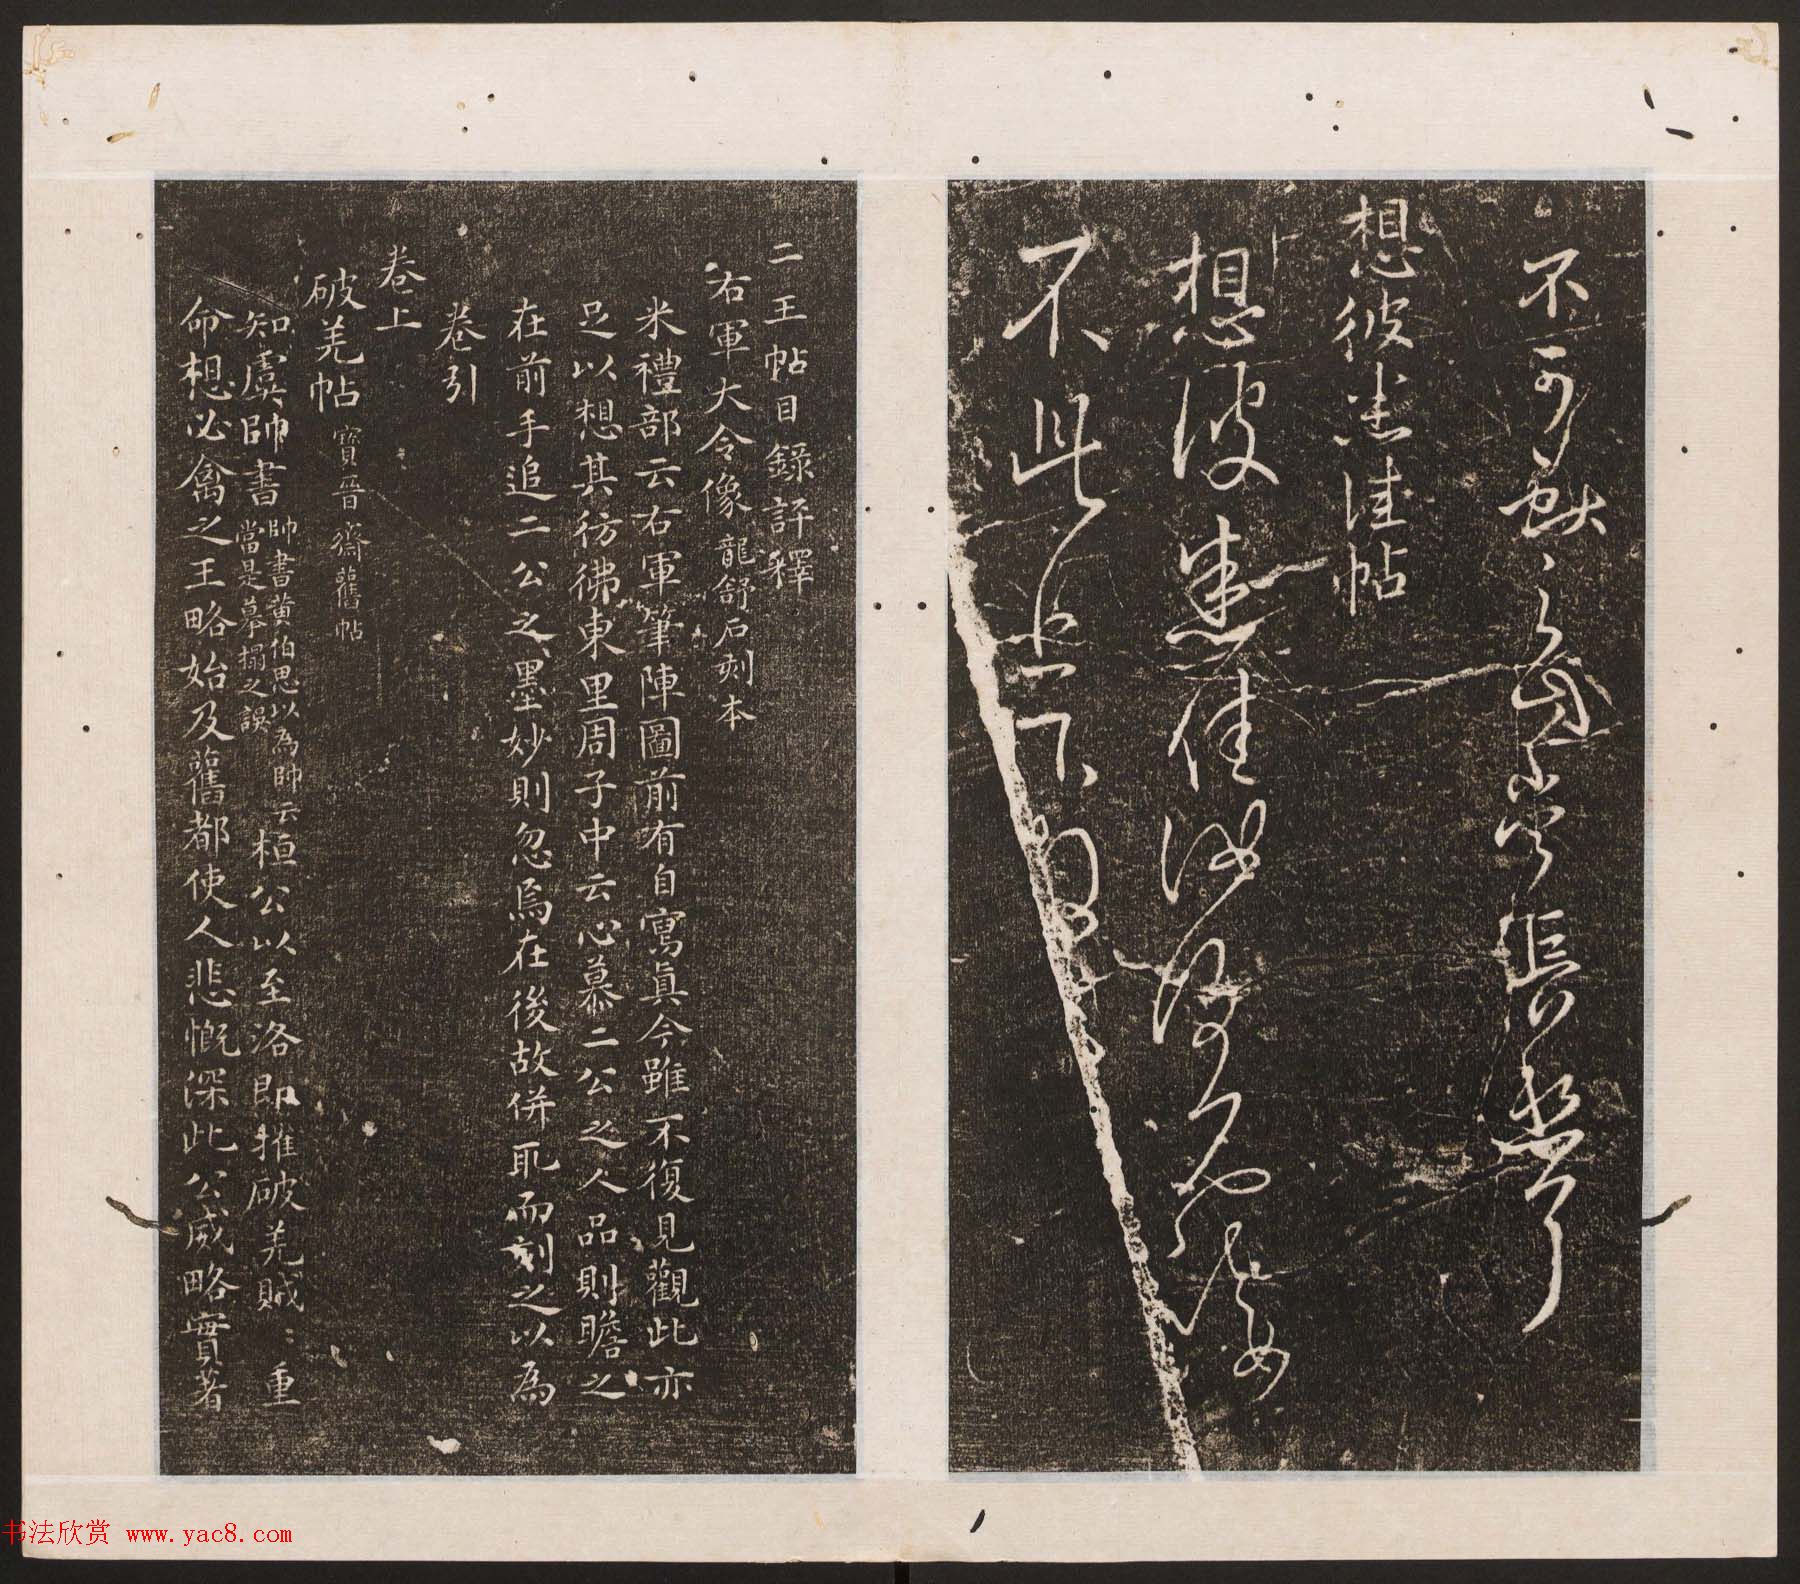 不可
想彼悉佳帖
想彼悉佳
不此上下
二王帖目錄評釋
右軍大令像 龍舒石刻本
米禮部云右軍筆陣圖前有自寫眞今雖不復見觀此亦
足以想其彷彿東里周子中云心慕二公之人品則瞻之
在前手追二公之墨妙則忽焉在後故併取而刻之以為
卷引
卷上
破羌帖 寶晉齋舊帖
知虞帥書 帥書黄伯思以為帥云當是摹搨之誤 桓公以至洛即摧破羌賊〻重
命想必禽之王略始及舊都使人悲慨深此公威略實著
书法欣赏 www.yac8.com